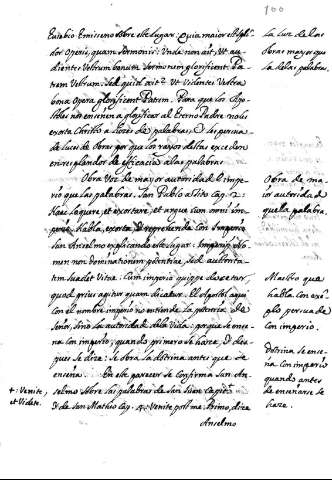 100
Eusebio Emisseno sobre este lugar: Quia maior est splen-
dor Operis, quam sermonis: Unde non ait, Ut au-
dientes Vestrum bonum sermonem glorificent Pa-
trem Vestrum. Sed quid ait? Ut Videntes Vestra
bona Opera glorificent Patrem. Para que los Apo-
stoles nos enseñen a glorificar al Eterno Padre no les
exorta Christo a luces de palabras,
de luces de Obras por que los rayos destas excedieron
en resplandor de eficacia a las palabras
Obra Voz de mayor autoridad e impe-
rio que las palabras. San Pablo a Tito Cap. 2:
Haec loquere, et exortare, et argue cum omni im-
perio. habla, exorta, reprehenda con Imperio
San Anselmo explicando este lugar: Imperij No-
men non dominationem potentiae, sed autorita-
tem suadet Vitae: Cum imperio quippe docetur,
quod prius agitur quam dicatur. El Apostol aqui
con el nombre imperio no entiende la potencia de
Señor, sino la autoridad de la Vida: porque se ense-
ña con imperio, quando primero se haze, y des-
pues se dize: se obra la dotrina antes que se
enseña. En este parecer se confirma San An-
selmo sobre las palabras de San Juan Capit.
y de San Matheo Cap. 4. Venite post me. Primo, dize
Anselmo
La luz de las
obras mayor que
la de las palabras.
Obra de ma-
ior autoridad
que la palabra.
Maestro que
habla con exē-
plo persuade
con imperio.
Dotrina se ense-
ña con imperio
quando antes
de enseñarse se
haze.
+: Venite,
et Videte.